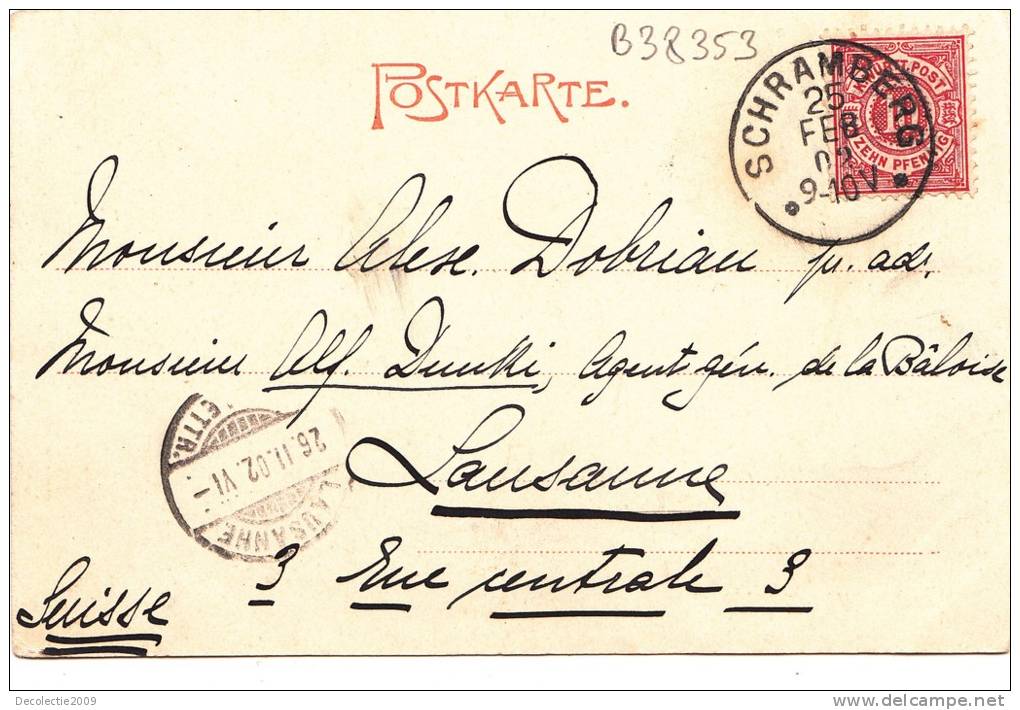 B38353
POSTKARTE.
K. WÜRTT. POST
ZEHN PFENNIG
SCHRAMBERG
25
FEB
02
9-10V
Monsieur Alexe. Dobriau pr. adr.
Monsieur Alf. Dunki, Agent gén. de la Bâloise
Lausanne
3 Rue centrale 3
Suisse
LETTR.
26.II.02.VI-
LAUSANNE
Decolectie2009
www.delcampe.net